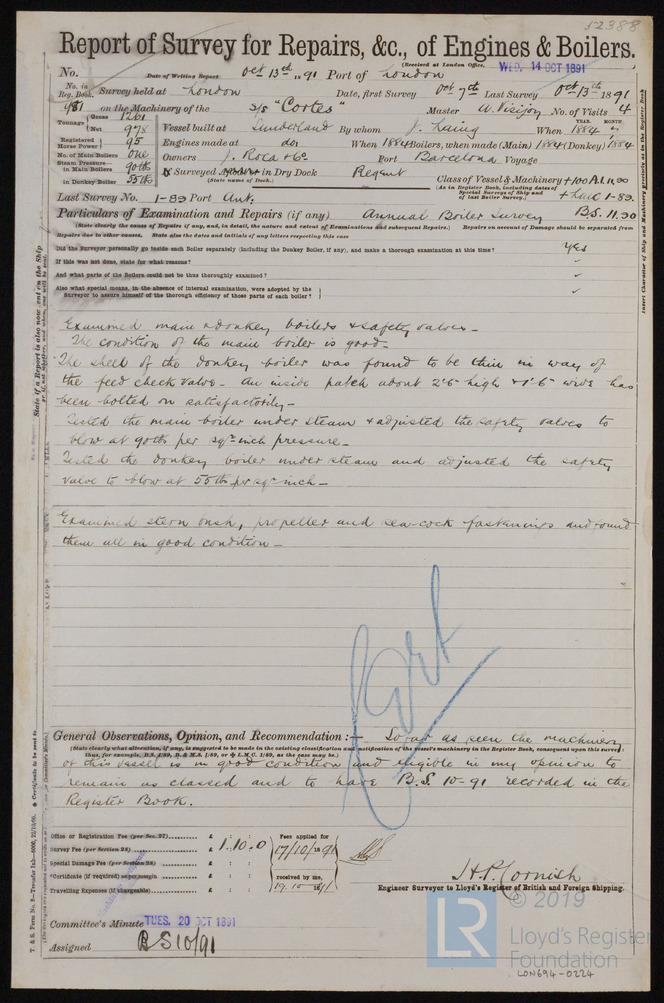 52388
Report of Survey for Repairs, &c., of Engines & Boilers.
(Received at London Office,
No. Date of Writing Report Oct 13th 1891 Port of London WED. 14 OCT 1891
No. in Reg. Book. Survey held at London Date, first Survey Oct 7th Last Survey Oct 13th 1891
981 on the Machinery of the S/S "Cortes" Master No. of Visits 4
Tonnage Gross 1261
Net 978 Vessel built at Sunderland By whom J. Laing When 1884
YEAR. MONTH.
Registered Horse Power 95 Engines made at do. When 1884 Boilers, when made (Main) 1884 (Donkey) 1884
No. of Main Boilers One Owners J. Roca & Co. Port Barcelona Voyage
Steam Pressure in Main Boilers 90 lbs
in Donkey Boiler 55 lbs If Surveyed Afloat or in Dry Dock Regent
(State name of Dock.)
Class of Vessel & Machinery +100 A.1. 11,90
(As in Register Book, including dates of Special Surveys of Ship and of last Boiler Survey.) + LMC 1-89.
Last Survey No. 1-89 Port Ant. B.S. 11.90
Particulars of Examination and Repairs (if any) Annual Boiler Survey
(State clearly the cause of Repairs if any, and, in detail, the nature and extent of Examinations and subsequent Repairs.) Repairs on account of Damage should be separated from
Repairs due to other causes. State also the dates and initials of any letters respecting this case
Did the Surveyor personally go inside each Boiler separately (including the Donkey Boiler, if any), and make a thorough examination at this time? Yes
If this was not done, state for what reasons?
And what parts of the Boilers could not be thus thoroughly examined?
Also what special means, in the absence of internal examination, were adopted by the
Surveyor to assure himself of the thorough efficiency of those parts of each boiler?
Examined main & donkey boilers & safety valves.
The condition of the main boiler is good.
The shell of the donkey boiler was found to be thin in way of
the feed check valve. An inside patch about 2'6" high & 1'6" wide has
been bolted on satisfactorily.
Tested the main boiler under steam & adjusted the safety valves to
blow at 90 lbs per sqr inch pressure.
Tested the donkey boiler under steam and adjusted the safety
valve to blow at 55 lbs pr sqr inch.
Examined stern bush, propeller and sea-cock fastenings and found
them all in good condition.
Cert
General Observations, Opinion, and Recommendation :— So far as seen the machinery
(State clearly what alteration, if any, is suggested to be made in the existing classification and notification of the vessel's machinery in the Register Book, consequent upon this survey:
thus, for example, B.S. 4/89, B. & M.S. 1/89, or L.M.C. 1/89, as the case may be.)
of this vessel is in good condition and eligible in my opinion to
remain as classed and to have B.S. 10-91 recorded in the
Register Book.
Office or Registration Fee (per Sec. 27) £ : :
Survey Fee (per Section 28) £ 1.10.0
Special Damage Fee (per Section 28) £ : :
Certificate (if required) as per margin £ : :
Travelling Expenses (if chargeable) £ : :
Fees applied for
17/10/1891
received by me,
19.10.1891
H.P. Cornish
Engineer Surveyor to Lloyd's Register of British and Foreign Shipping.
Committee's Minute TUES. 20 OCT 1891
Assigned B S 10/91
© 2019
LR
Lloyd's Register
Foundation
LON694-0224